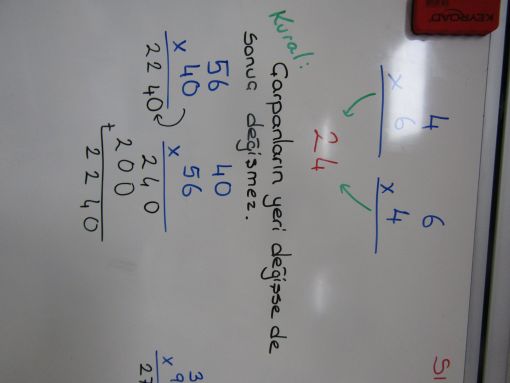 KEYROAD
4
x 6
6
x 4
24
SI
Kural:
Çarpanların yeri değişse de
sonuc değişmez.
56
x 40
2240
40
x 56
240
+ 200
2240
3
x 9
27